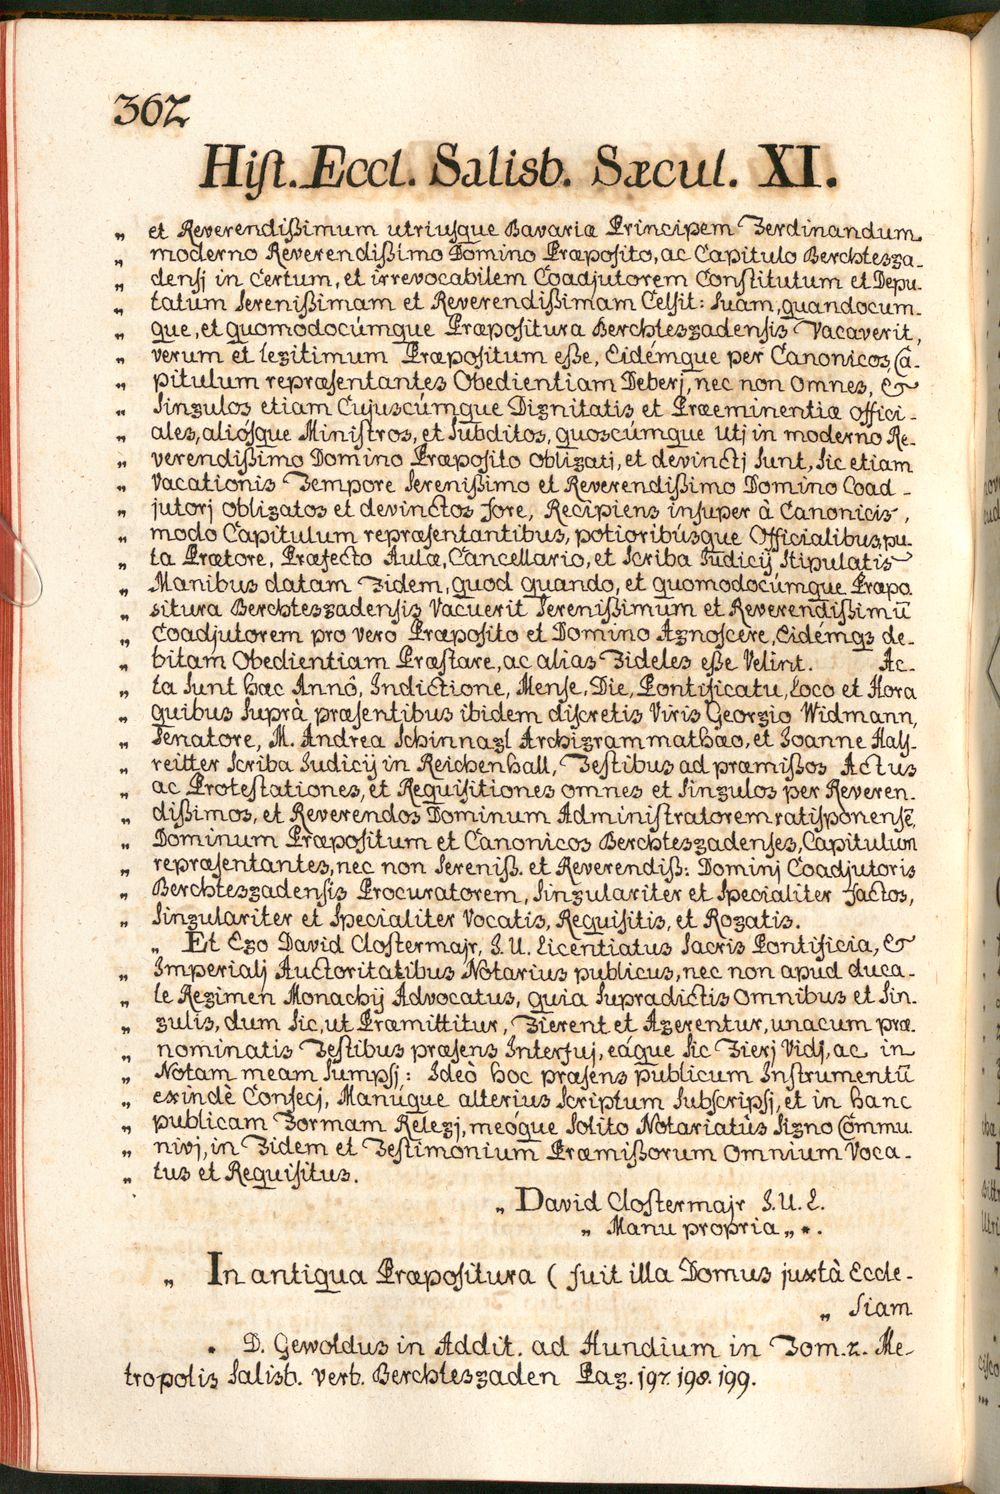 362
Hist. Eccl. Salisb. Sæcul. XI.
„ et Reverendißimum utriusque Bavariæ Principem Ferdinandum
„ moderno Reverendißimo Domino Præposito, ac Capitulo Berchtesga-
„ densj in Certum, et irrevocabilem Coadjutorem Constitutum et Depu-
„ tatum Serenißimam et Reverendißimam Celsit: Suam, quandocum-
„ que, et quomodocúmque Præpositura Berchtesgadensis Vacaverit,
„ verum et legitimum Præpositum eße, Eidémque per Canonicos, Ca-
„ pitulum repræsentantes Obedientiam Deberj, nec non Omnes, &
„ Singulos etiam Cujuscúmque Dignitatis et Præeminentiæ Offici-
„ ales, aliósque Ministros, et Subditos, quoscúmque Utj in moderno Re-
„ verendißimo Domino Præposito Obligatj, et devinctj Sunt, Sic etiam
„ Vacationis Tempore Serenißimo et Reverendißimo Domino Coad-
„ jutorj obligatos et devinctos fore, Recipiens insuper à Canonicis,
„ modo Capitulum repræsentantibus, potioribúsque Officialibus, pu-
„ ta Prætore, Præfecto Aulæ, Cancellario, et Scriba Judicij Stipulatis
„ Manibus datam Fidem, quod quando, et quomodocúmque Præpo
„ situra Berchtesgadensis Vacuerit Serenißimum et Reverendißimū
„ Coadjutorem pro vero Præposito et Domino Agnoscere, Eidémq3 de-
„ bitam Obedientiam Præstare, ac alias Fideles eße Velint. Ac-
„ ta Sunt hæc Annô, Indictione, Mense, Die, Pontificatu, Loco et Hora
„ quibus Suprà præsentibus ibidem discretis Viris Georgio Widmann,
„ Senatore, M. Andrea Schinnagl Archigrammathæo, et Joanne Hals-
„ reitter Scriba Judicij in Reichenhall, Testibus ad præmißos Actus
„ ac Protestationes, et Requisitiones omnes et Singulos per Reveren-
„ dißimos, et Reverendos Dominum Administratorem ratisponensē,
„ Dominum Præpositum et Canonicos Berchtesgadenses, Capitulum
„ repræsentantes, nec non Sereniß. et Reverendiß: Dominj Coadjutoris
„ Berchtesgadensis Procuratorem, Singulariter et Specialiter factos,
„ Singulariter et Specialiter Vocatis, Requisitis, et Rogatis.
„ Et Ego David Clostermajr, J. U. Licentiatus Sacris Pontificia, &
„ Imperialj Auctoritatibus Notarius publicus, nec non apud duca-
„ le Regimen Monachij Advocatus, quia Supradictis Omnibus et Sin-
„ gulis, dum Sic, ut Præmittitur, Fierent et Agerentur, unacum præ-
„ nominatis Testibus præsens Interfuj, eáque Sic Fierj Vidj, ac in
„ Notam meam Sumpsj: Ideò hoc præsens publicum Instrumentū
„ exindè Confecj, Manúque alterius Scriptum Subscripsj, et in hanc
„ publicam Formam Relegj, meóque Solito Notariatûs Signo Commu
„ nivj, in Fidem et Testimonium Præmißorum Omnium Voca-
„ tus et Requisitus.
„ David Clostermajr J. U. L.
„ Manu propria „ *.
„ In antiqua Præpositura ( fuit illa Domus juxtà Eccle-
„ siam
* D. Gewoldus in Addit. ad Hundium in Tom. 2. Me-
tropolis Salisb. verb. Berchtesgaden Pag. 197. 198. 199.